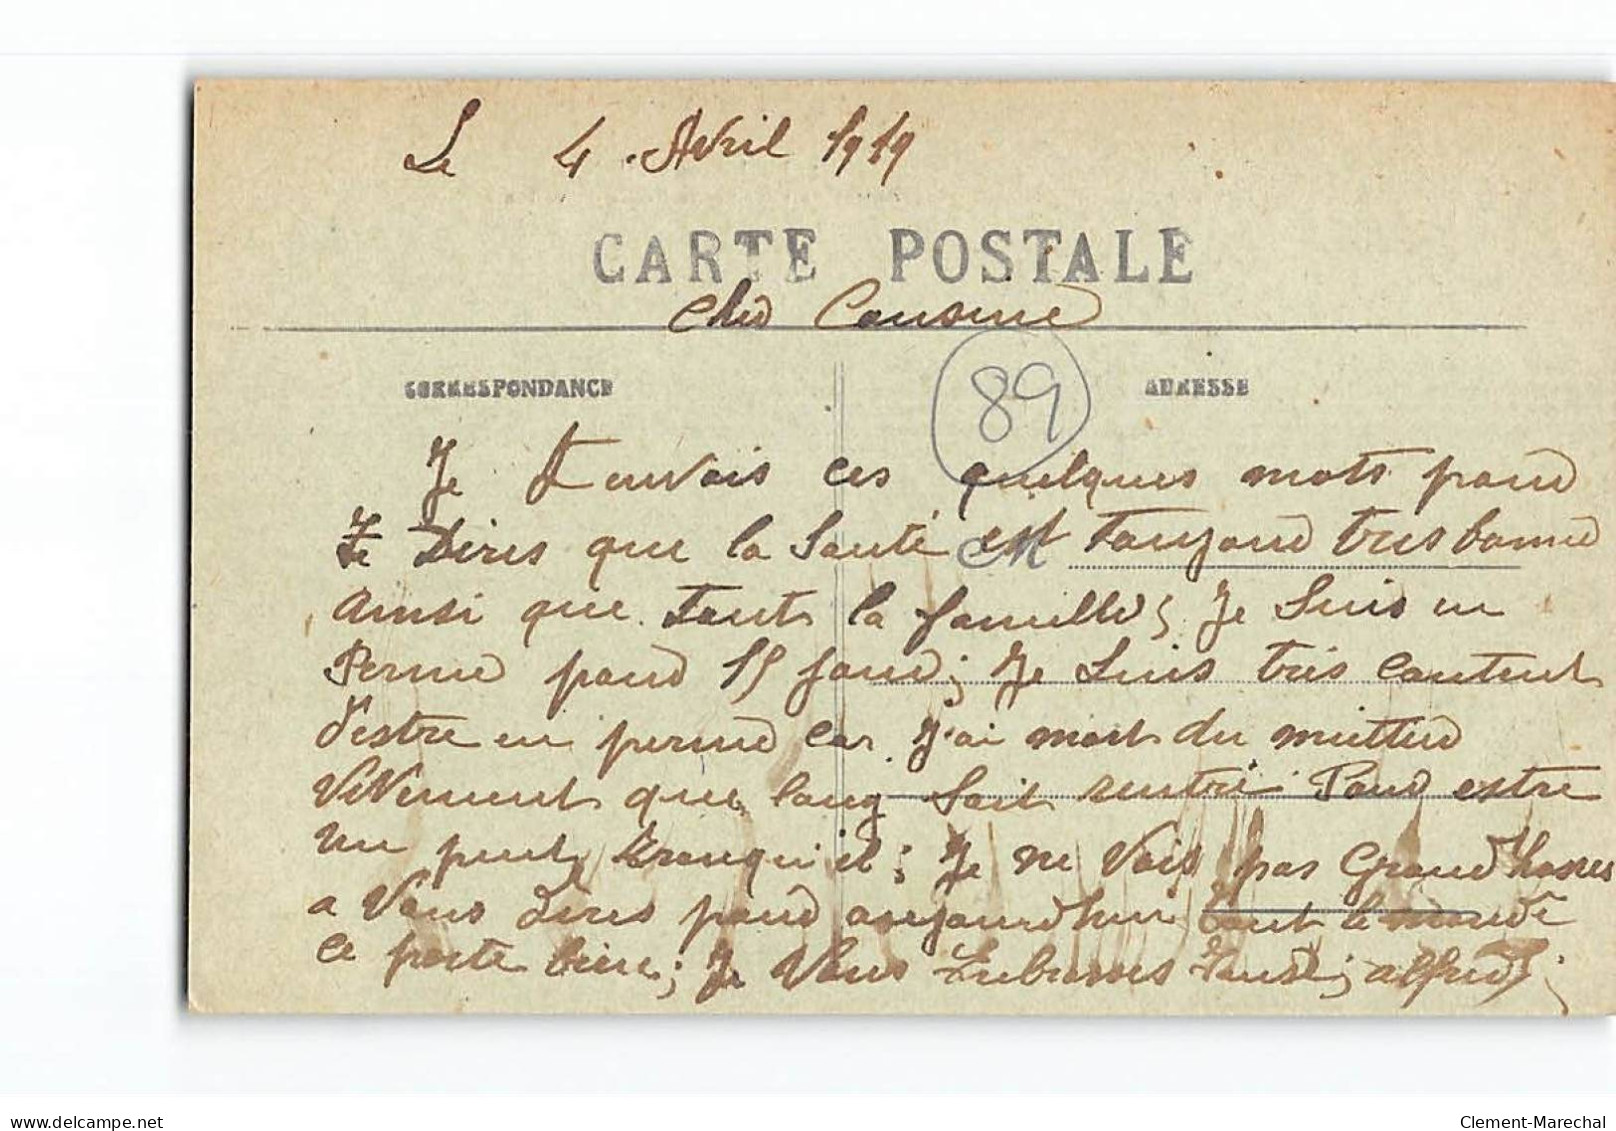 Le 4 Avril 1919
CARTE POSTALE
Cher Cousine
89
CORRESPONDANCE
ADRESSE
Je t'envois ces quelques mots pour
te Dires que la Santé est toujour tres bonne
ainsi que touts la famille; Je Suis en
Perme pour 15 jour; Je Suis très contents
d'estre en perme car j'ai mart du mettier
Vivement que long soit rentré Pour estre
un peut tranquil; Je ne Vois pas Grand'hoses
a Vous dires pour aujourd'hui tout le monde
ce porte bien; Je Vous Embrasses tous; alfred;
www.delcampe.net
Clement-Marechal